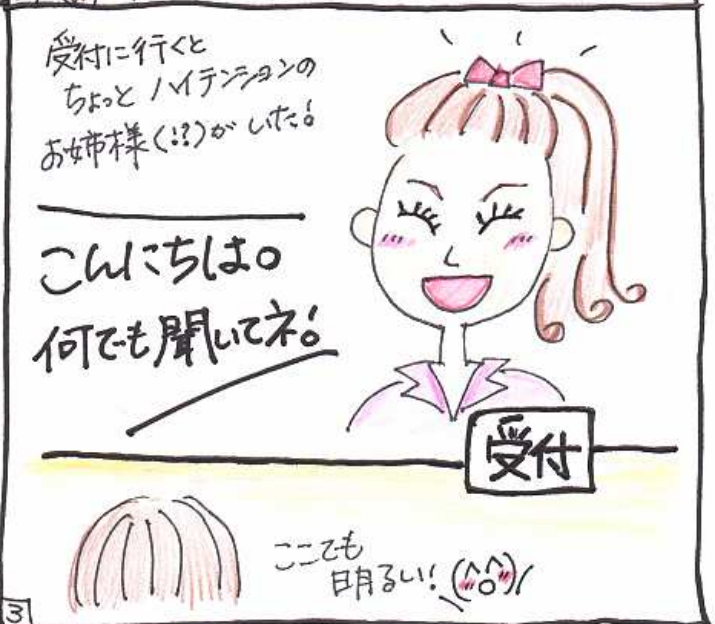 受付に行くと
ちょっと ハイテンションの
お姉様(!?)が いた!
こんにちは。
何でも聞いてネ!
受付
ここでも
明るい!(^o^)/
3